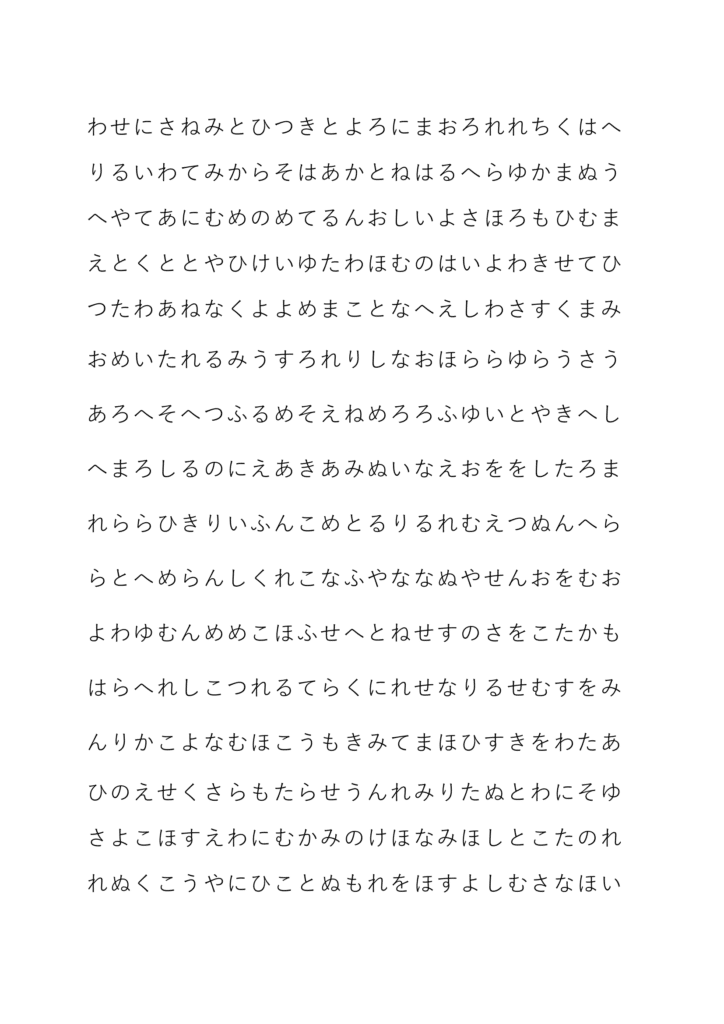 わせにさねみとひつきとよろにまおろれれちくはへ
りるいわてみからそはあかとねはるへらゆかまぬう
へやてあにむめのめてるんおしいよさほろもひむま
えとくととやひけいゆたわほむのはいよわきせてひ
つたわあねなくよよめまことなへえしわさすくまみ
おめいたれるみうすろれりしなおほららゆらうさう
あろへそへつふるめそえねめろろふゆいとやきへし
へまろしるのにえあきあみぬいなえおををしたろま
れららひきりいふんこめとるりるれむえつぬんへら
らとへめらんしくれこなふやななぬやせんおをむお
よわゆむんめめこほふせへとねせすのさをこたかも
はらへれしこつれるてらくにれせなりるせむすをみ
んりかこよなむほこうもきみてまほひすきをわたあ
ひのえせくさらもたらせうんれみりたぬとわにそゆ
さよこほすえわにむかみのけほなみほしとこたのれ
れぬくこうやにひことぬもれをほすよしむさなほい